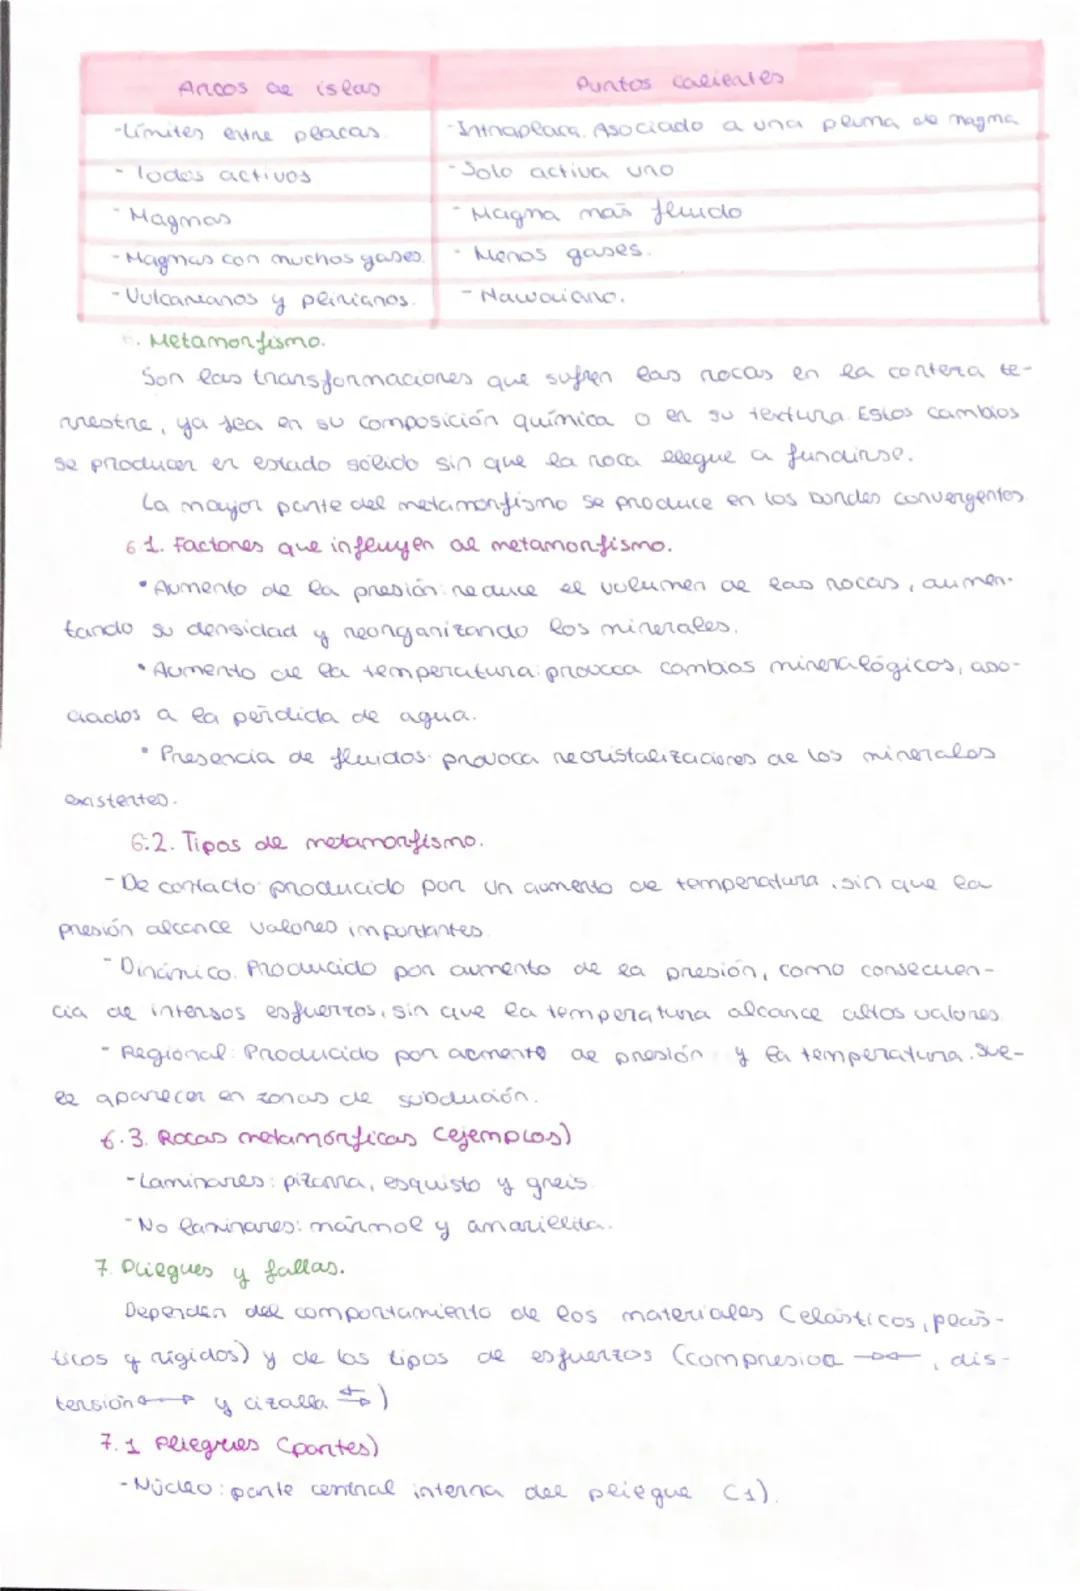 Arcos de islas | Puntos calientes
-Límites entre placas. | -Intraplaca. Asociado a una pluma de magma
- Todos activos | -Solo activa uno
- Magmas | - Magma más fluido
- Magmas con muchos gases. | - Menos gases.
- Vulcanianos y plinianos. | - Hawaiano.
6. Metamorfismo.
Son las transformaciones que sufren las rocas en la corteza te-
rrestre, ya sea en su composición química o en su textura. Estos cambios
se producen en estado sólido sin que la roca llegue a fundirse.
La mayor parte del metamorfismo se produce en los bordes convergentes.
6.1. Factores que influyen al metamorfismo.
• Aumento de la presión: reduce el volumen de las rocas, aumen-
tando su densidad y reorganizando los minerales.
• Aumento de la temperatura: provoca cambios mineralógicos, aso-
ciados a la pérdida de agua.
• Presencia de fluidos: provoca recristalizaciones de los minerales
existentes.
6.2. Tipos de metamorfismo.
- De contacto: producido por un aumento de temperatura, sin que la
presión alcance valores importantes.
- Dinámico. Producido por aumento de la presión, como consecuen-
cia de intensos esfuerzos, sin que la temperatura alcance altos valores.
- Regional: Producido por aumento de presión y la temperatura. Sue-
le aparecer en zonas de subdución.
6.3. Rocas metamórficas (ejemplos)
-Laminares: pizarra, esquisto y gneis.
- No laminares: mármol y amarillita.
7. Pliegues y fallas.
Dependen del comportamiento de los materiales (elásticos, plás-
ticos y rígidos) y de los tipos de esfuerzos (compresiva →←, dis-
tensión ←→ y cizalla ⇆)
7.1 Pliegues (partes)
- Núcleo: parte central interna del pliegue (1).